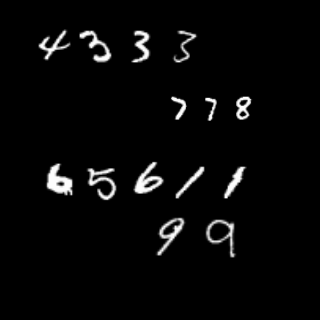 4333
778
65611
99